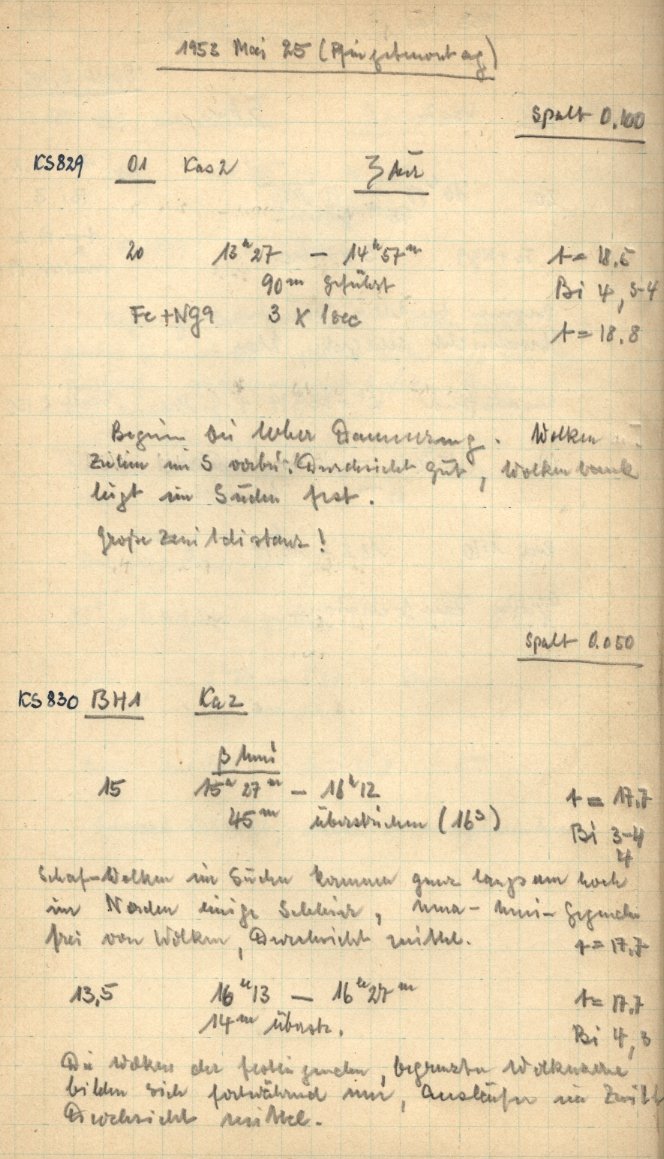 1953 Mai 25 (Pfingstmontag)
Spalt 0.100
KS829 O1 Kas2 ζ
20 13h27 – 14h57m t = 18.5
90m geführt Bi 4, 3-4
Fe + Ng9 3 x 1sec t = 18.8
Beginn bei heller Dämmerung. Wolken
ziehen im S vorbei. Durchsicht gut, Wolkenbank
liegt im Süden fest.
Große Zenitdistanz!
Spalt 0.050
KS830 BH1 Ka2
β Umi
15 15h27m – 16h12 t = 17.7
45m überstrichen (16s) Bi 3-4
4
Schaf-Wolken im Süden kommen ganz langsam hoch
im Norden einige Schleier, Uma-Umi-Gegend
frei von Wolken, Durchsicht mittel. t = 17.7
13,5 16h13 – 16h27m t = 17.7
14m überstr. Bi 4, 3
Die Wolken der begrenzten
bilden sich fortwährend neu, Ausläufer im Zenit
Durchsicht mittel.